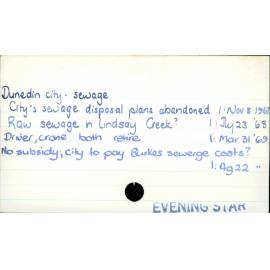 Dunedin city - sewage
City's sewage disposal plans abandoned 1: Nov 8 196
Raw sewage in Lindsay Creek? 1: Jly 23 '68
Driver, crane both retire 1: Mar 31 '69
No subsidy; city to pay Burkes sewerge costs?
1: Ag 22 "
EVENING STAR